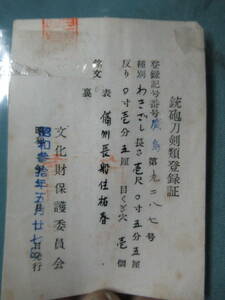 銃砲刀剣類登録証
登録記号番号 廣島 第九二八七号
種別 わきざし 長さ 壱尺〇寸五分五厘
反り 〇寸壱分五厘 目くぎ穴 壱個
銘文 表 備州長船住祐春
裏
昭和参拾年五月廿七日
文化財保護委員会